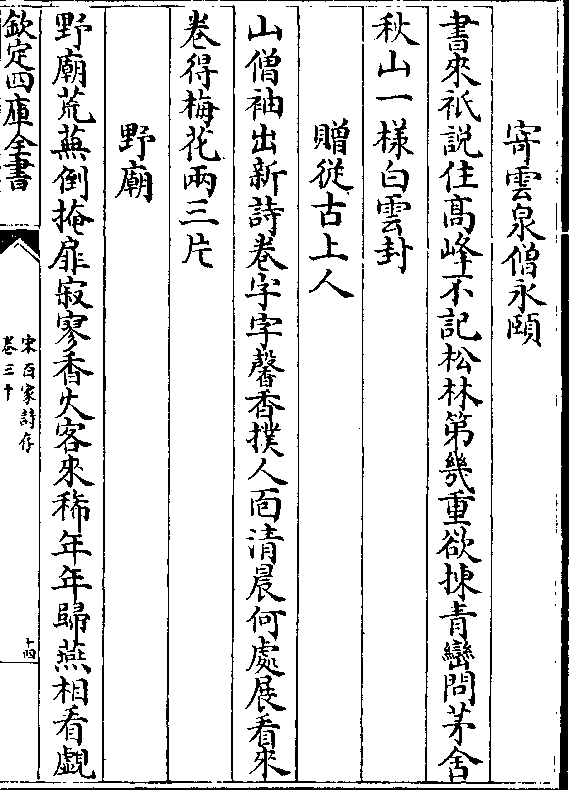 寄雲泉僧永頤
書來祇說住髙峰不記松林第幾重欲揀青巒問茅舍
秋山一様白雲封
贈從古上人
山僧袖出新詩卷字字馨香撲人面清晨何處展看來
卷得梅花兩三片
野廟
野廟荒蕪倒掩扉寂寥香火客來稀年年歸燕相看覷
欽定四庫全書
宋百家詩存
卷三十
十四